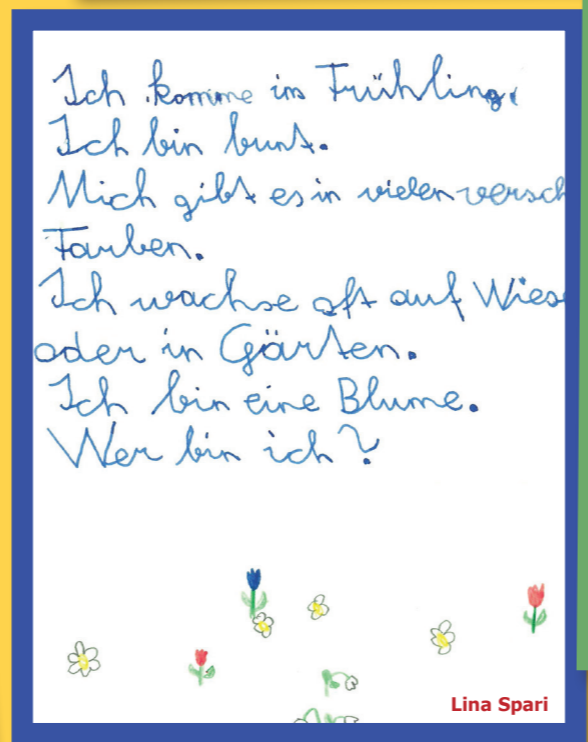 Ich komme im Frühling.
Ich bin bunt.
Mich gibt es in vielen versch
Farben.
Ich wachse oft auf Wies
oder in Gärten.
Ich bin eine Blume.
Wer bin ich?
Lina Spari